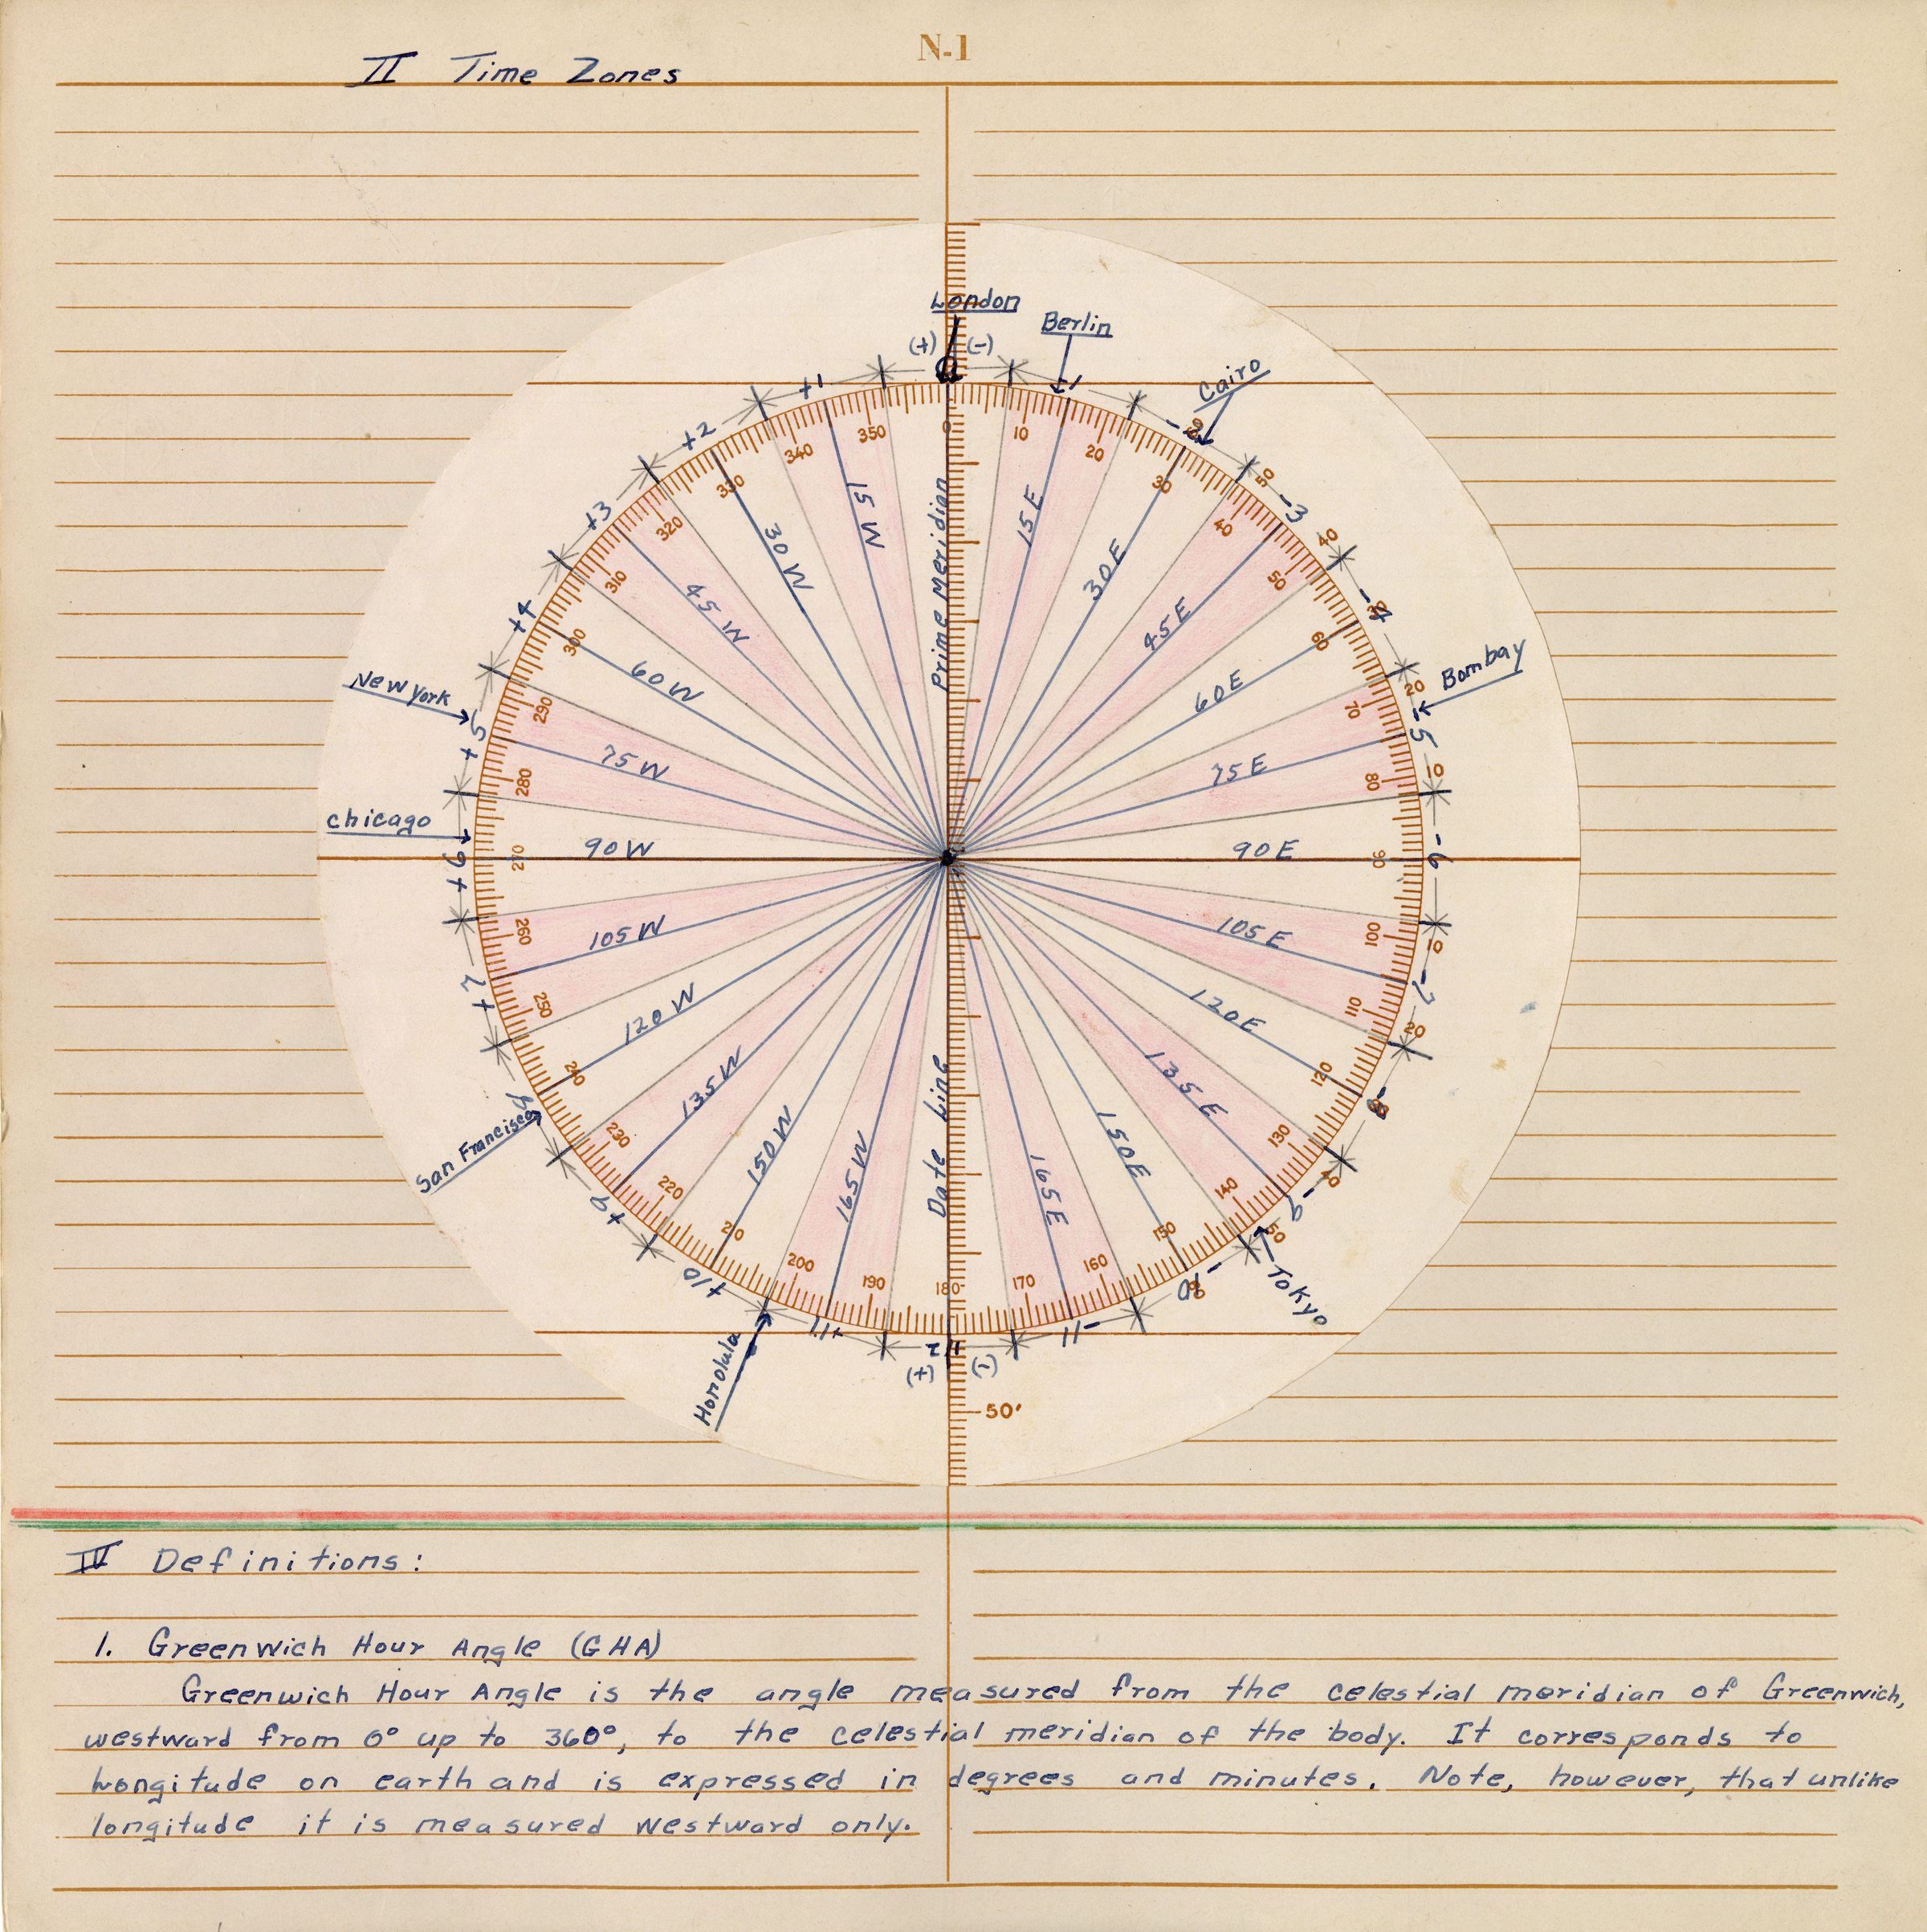 N-1
II Time Zones
London
Berlin
Cairo
(+) (-)
0
+1
-1
+2
-2
+3
-3
+4
-4
+5
-5
+6
-6
+7
-7
8
-8
+9
-9
+10
-10
+11
-11
12
(+) (-)
New York
Chicago
San Francisco
Honolula
Bombay
Tokyo
0
10
20
30
40
50
60
70
80
90
100
110
120
130
140
150
160
170
180
190
200
210
220
230
240
250
260
270
280
290
300
310
320
330
340
350
50
40
30
20
10
10
20
40
50
50'
Prime Meridian
15 E
30 E
45 E
60 E
75 E
90 E
105 E
120 E
135 E
150 E
165 E
Date Line
165 W
150 W
135 W
120 W
105 W
90 W
75 W
60 W
45 W
30 W
15 W
IV Definitions:
1. Greenwich Hour Angle (GHA)
Greenwich Hour Angle is the angle measured from the celestial meridian of Greenwich,
westward from 0° up to 360°, to the celestial meridian of the body. It corresponds to
Longitude on earth and is expressed in degrees and minutes. Note, however, that unlike
longitude it is measured westward only.